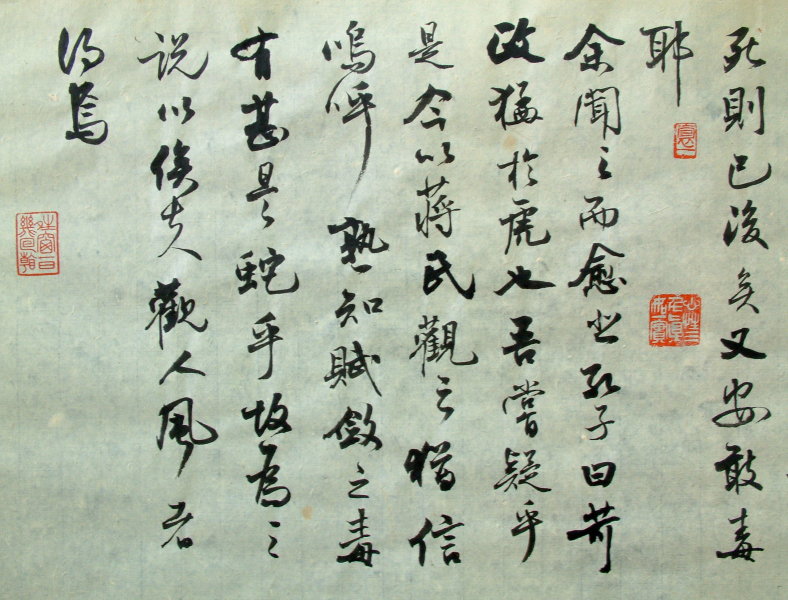 死則已後矣又安敢毒
耶
余聞之而愈悲孔子曰苛
政猛於虎也吾嘗疑乎
是今以蔣民觀之猶信
嗚呼熟知賦斂之毒
有甚是蛇乎故為之
說以俟夫觀人風者
得焉